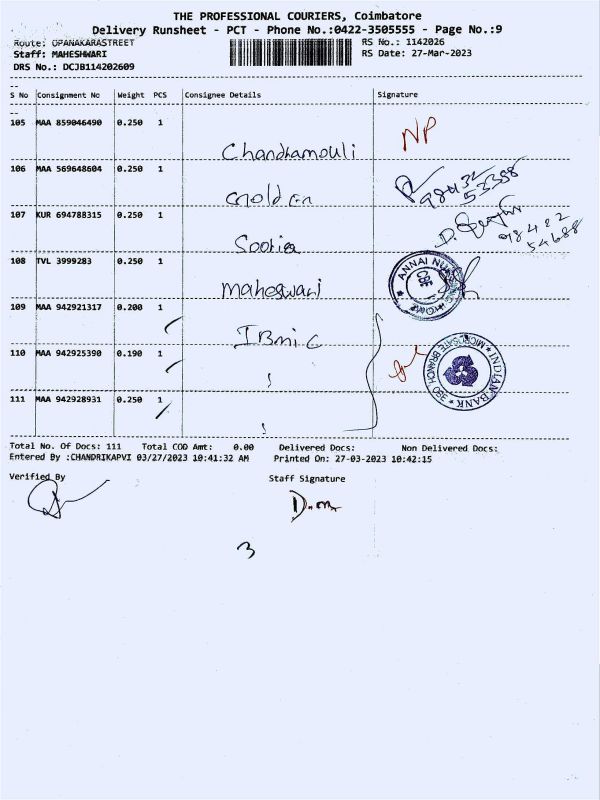 THE PROFESSIONAL COURIERS, Coimbatore
Delivery Runsheet - PCT - Phone No.:0422-3505555 - Page No.:9
Route: OPANAKARASTREET RS No.: 1142026
Staff: MAHESHWARI RS Date: 27-Mar-2023
DRS No.: DCJB114202609
S No Consignment No Weight PCS Consignee Details Signature
105 MAA 859046490 0.250 1 Chandramouli NP
106 MAA 569648604 0.250 1 Golden 98432 53388
107 KUR 694788315 0.250 1 D. 98482 54688
108 TVL 3999283 0.250 1 Maheswari ANNAI CBE
109 MAA 942921317 0.200 1 IBMIC
110 MAA 942925390 0.190 1 INDIAN BANK BRANCH CBE
111 MAA 942928931 0.250 1
Total No. Of Docs: 111 Total COD Amt: 0.00 Delivered Docs: Non Delivered Docs:
Entered By :CHANDRIKAPVI 03/27/2023 10:41:32 AM Printed On: 27-03-2023 10:42:15
Verified By Staff Signature
D.m
3